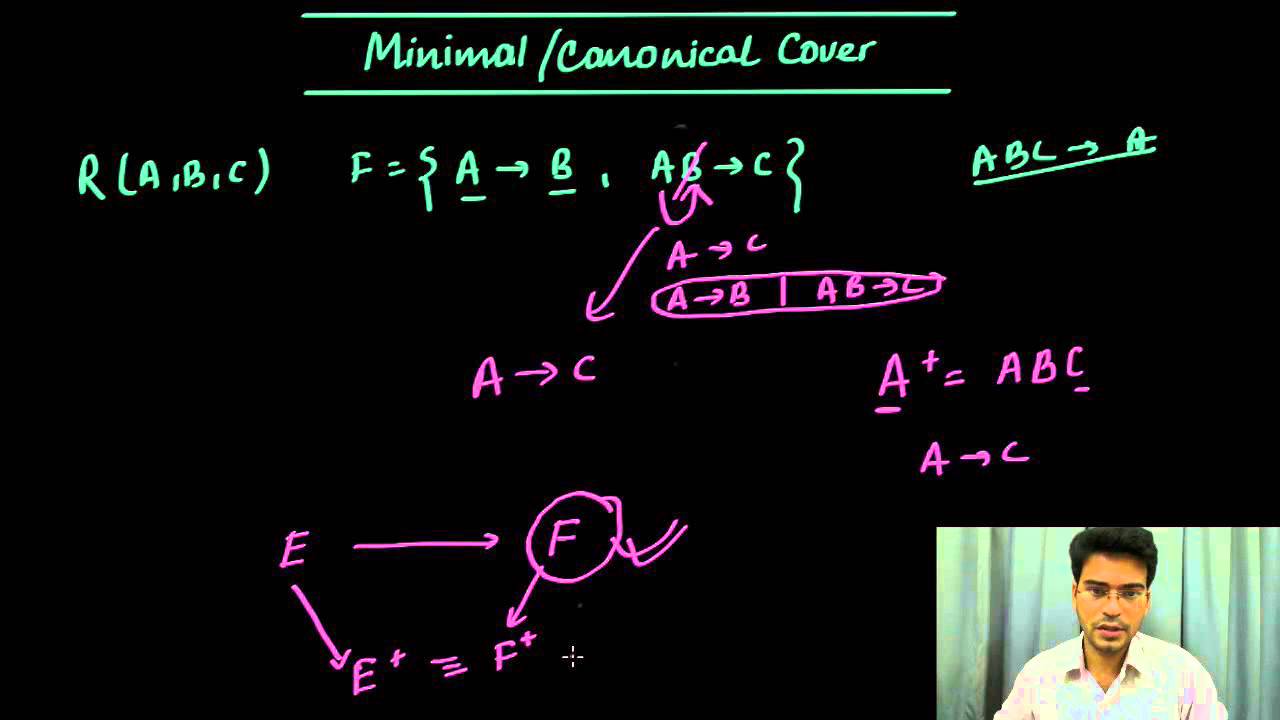 Minimal/Canonical Cover
R(A,B,C) F = { A → B , AB → C } ABC → A
A → C
A → B | AB → C
A → C A⁺ = ABC
A → C
E → F
E⁺ ≡ F⁺